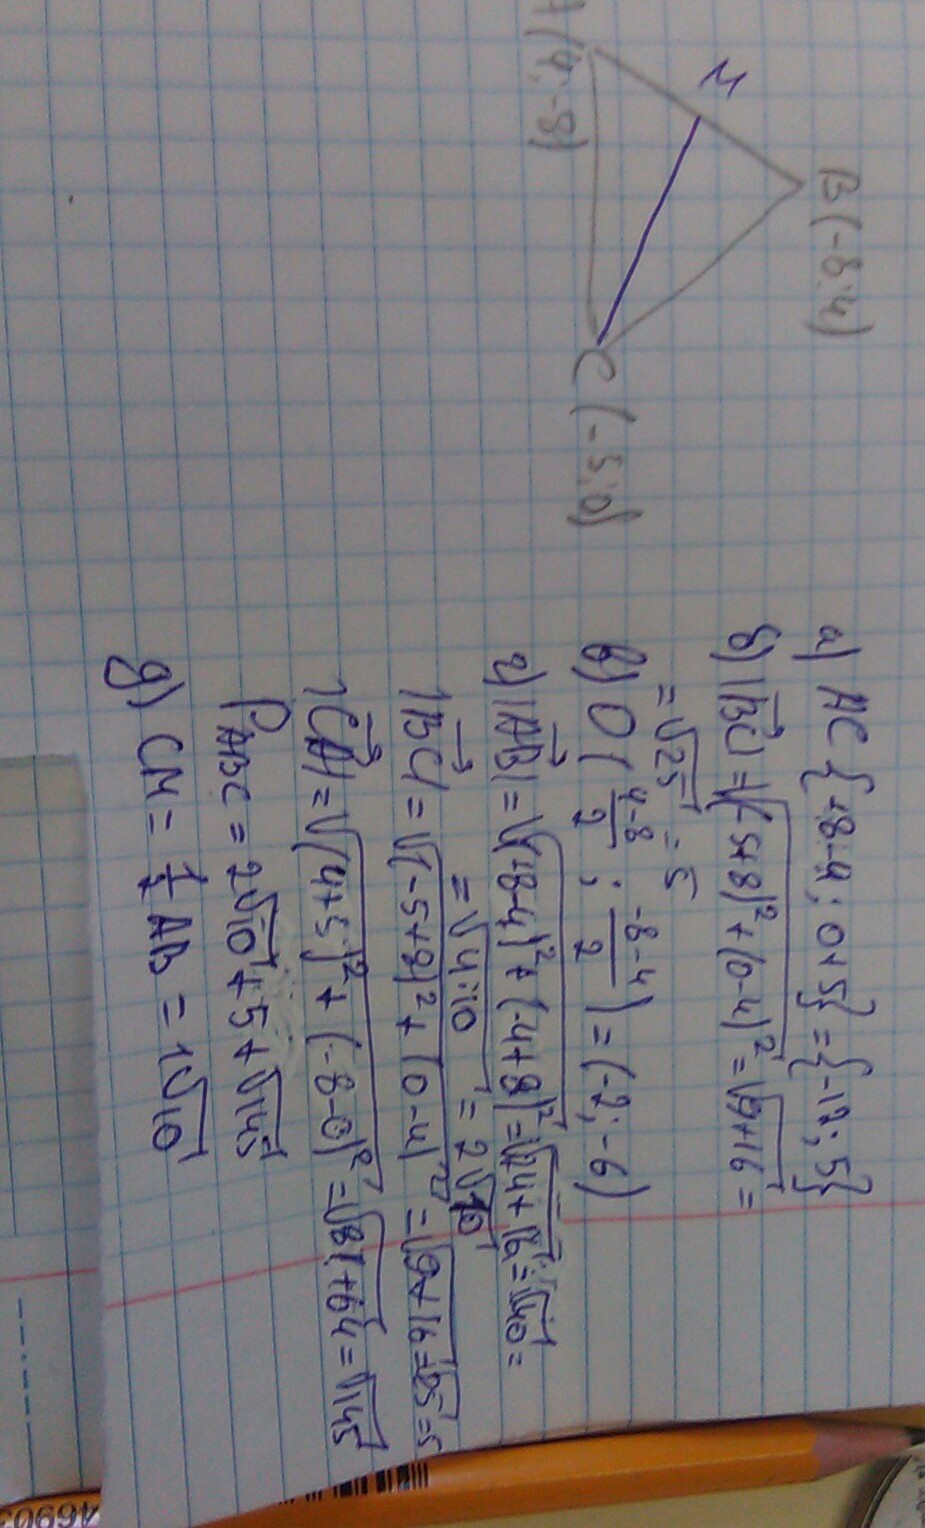 M
B (-8; 4)
A (4; -8)
C (-5; 0)
а) AC {+8-4; 0+5} = {-12; 5}
б) |BC| = √(-5+8)² + (0-4)² = √9+16 =
= √25 = 5
в) O ( 4-8/2 ; -8-4/2 ) = (-2; -6)
г) |AB| = √(+8-4)² + (-4+8)² = √24+16 = √40 =
= √4·10 = 2√10
|BC| = √(-5+8)² + (0-4)² = √9+16 = √25 = 5
|CA| = √(4+5)² + (-8-0)² = √81+64 = √145
P ABC = 2√10 + 5 + √145
д) CM = 1/2 AB = 1√10
46903